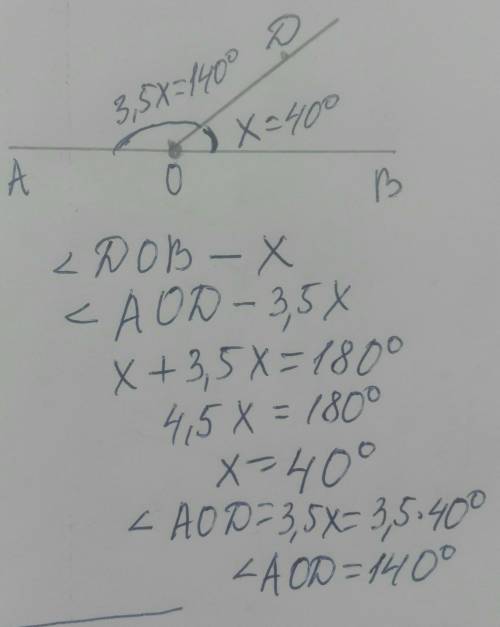 D
3,5x=140°
x=40°
A O B
∠DOB – x
∠AOD – 3,5x
x+3,5x=180°
4,5x=180°
x=40°
∠AOD=3,5x=3,5·40°
∠AOD=140°